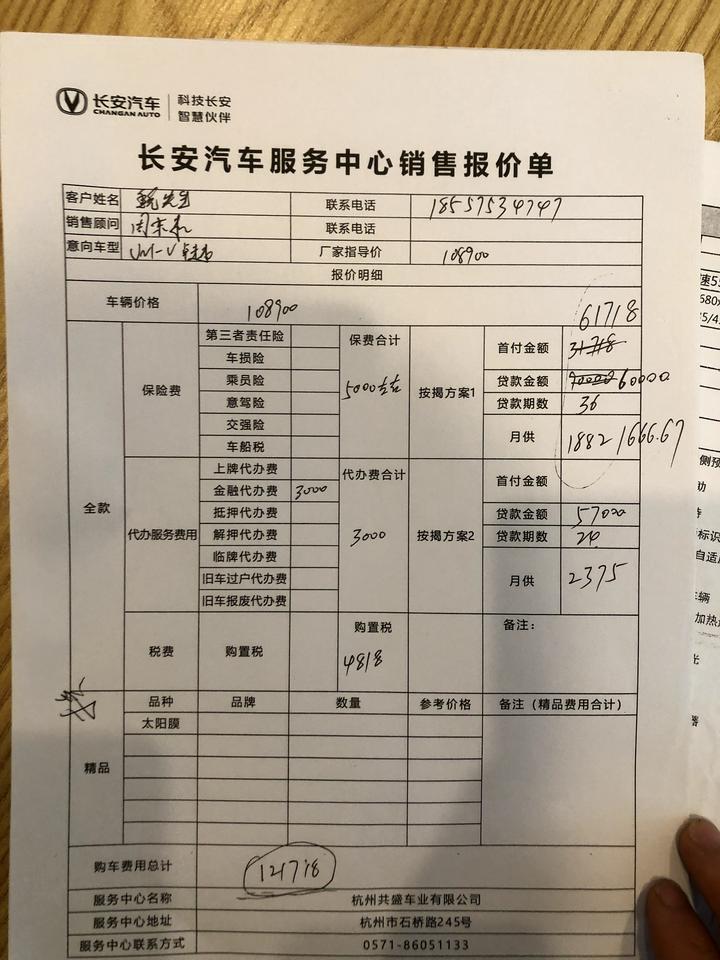 长安汽车 科技长安
CHANGAN AUTO 智慧伙伴
长安汽车服务中心销售报价单
客户姓名 甄先生 联系电话 18557534747
销售顾问 联系电话
意向车型 UNI-V 厂家指导价 108900
报价明细
车辆价格 108900 61718
全款 保险费 第三者责任险 保费合计 按揭方案1 首付金额 31718
车损险 贷款金额 70000 60000
乘员险 5000左右 贷款期数 36
意驾险 月供 1882 1666.67
交强险
车船税
代办服务费用 上牌代办费 代办费合计 按揭方案2 首付金额
金融代办费 3000
抵押代办费 3000 贷款金额 57000
解押代办费 贷款期数 24
临牌代办费 月供 2375
旧车过户代办费
旧车报废代办费
税费 购置税 购置税 4818 备注：
精品 品种 品牌 数量 参考价格 备注（精品费用合计）
太阳膜
购车费用总计 121718
服务中心名称 杭州共盛车业有限公司
服务中心地址 杭州市石桥路245号
服务中心联系方式 0571-86051133